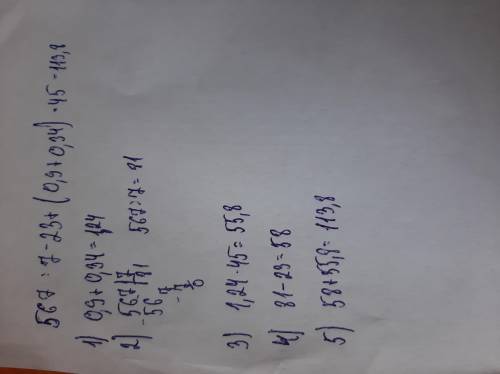 567 : 7 - 23 + (0,9 + 0,34) · 45 = 113,8
1) 0,9 + 0,34 = 1,24
2) 567 | 7 567 : 7 = 81
- 56 | 81
7
- 7
0
3) 1,24 · 45 = 55,8
4) 81 - 23 = 58
5) 58 + 55,8 = 113,8